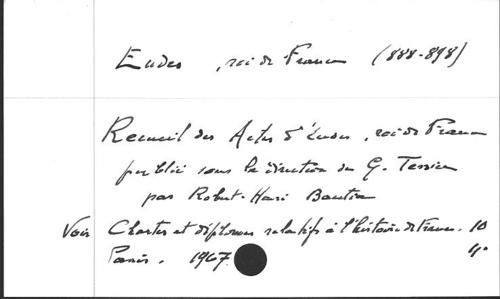 Eudes, roi de France (888-898)
Recueil des Actes d'Eudes, roi de France
publié sous la direction de G. Tessier
par Robert-Henri Bautier
Voir Chartes et diplômes relatifs à l'histoire de France. 10
Paris. 1967. 4°